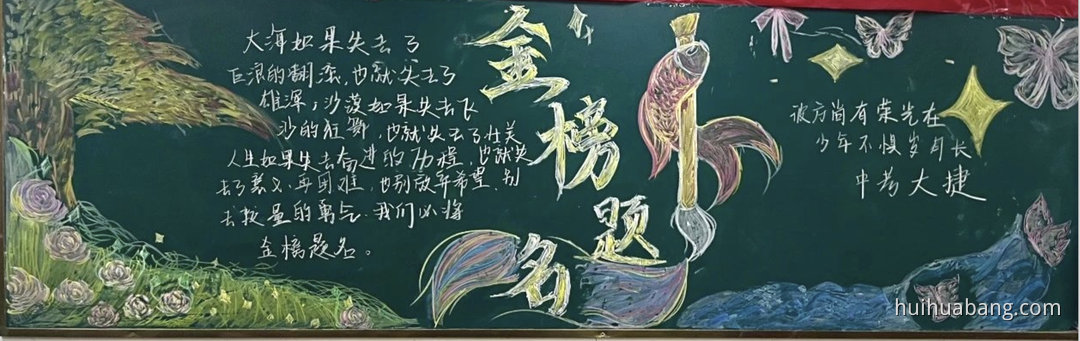 大海如果失去了
巨浪的翻滚,也就失去了
雄浑;沙漠如果失去飞
沙的狂舞,也就失去了壮美
人生如果失去奋进的历程,也就失
去了意义.再困难,也别放弃希望.别
去较量的勇气.我们必将
金榜题名。
金榜题名
彼方尚有荣光在
少年不惧岁月长
中考大捷
huihuabang.com